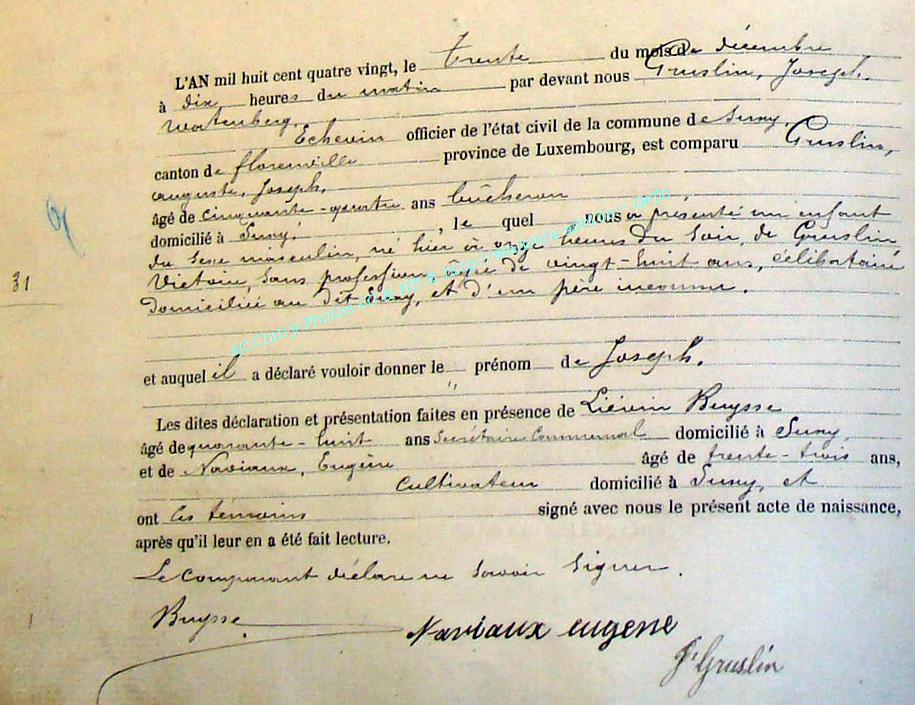 L'AN mil huit cent quatre vingt, le trente du mois de décembre
à dix heures du matin par devant nous Gruslin, Joseph
Watenberg,
Echevin officier de l'état civil de la commune de Sugny,
canton de florenville province de Luxembourg, est comparu Gruslin,
auguste, Joseph,
âgé de cinquante-quatre ans bûcheron
domicilié à Sugny, le quel nous a présenté un enfant
du sexe masculin, né hier à onze heures du soir, de Gruslin
Victoire, sans profession, âgée de vingt-huit ans, célibataire
domiciliée au dit Sugny, et d'un père inconnu.
31
et auquel il a déclaré vouloir donner le prénom de Joseph.
Les dites déclaration et présentation faites en présence de Liévin Buysse
âgé de quarante-huit ans Secrétaire Communal domicilié à Sugny
et de Naviaux, Eugène âgé de trente-trois ans,
Cultivateur domicilié à Sugny, et
ont les témoins signé avec nous le présent acte de naissance,
après qu'il leur en a été fait lecture.
Le comparant déclare ne savoir signer.
Buysse
Naviaux eugene
J. Gruslin